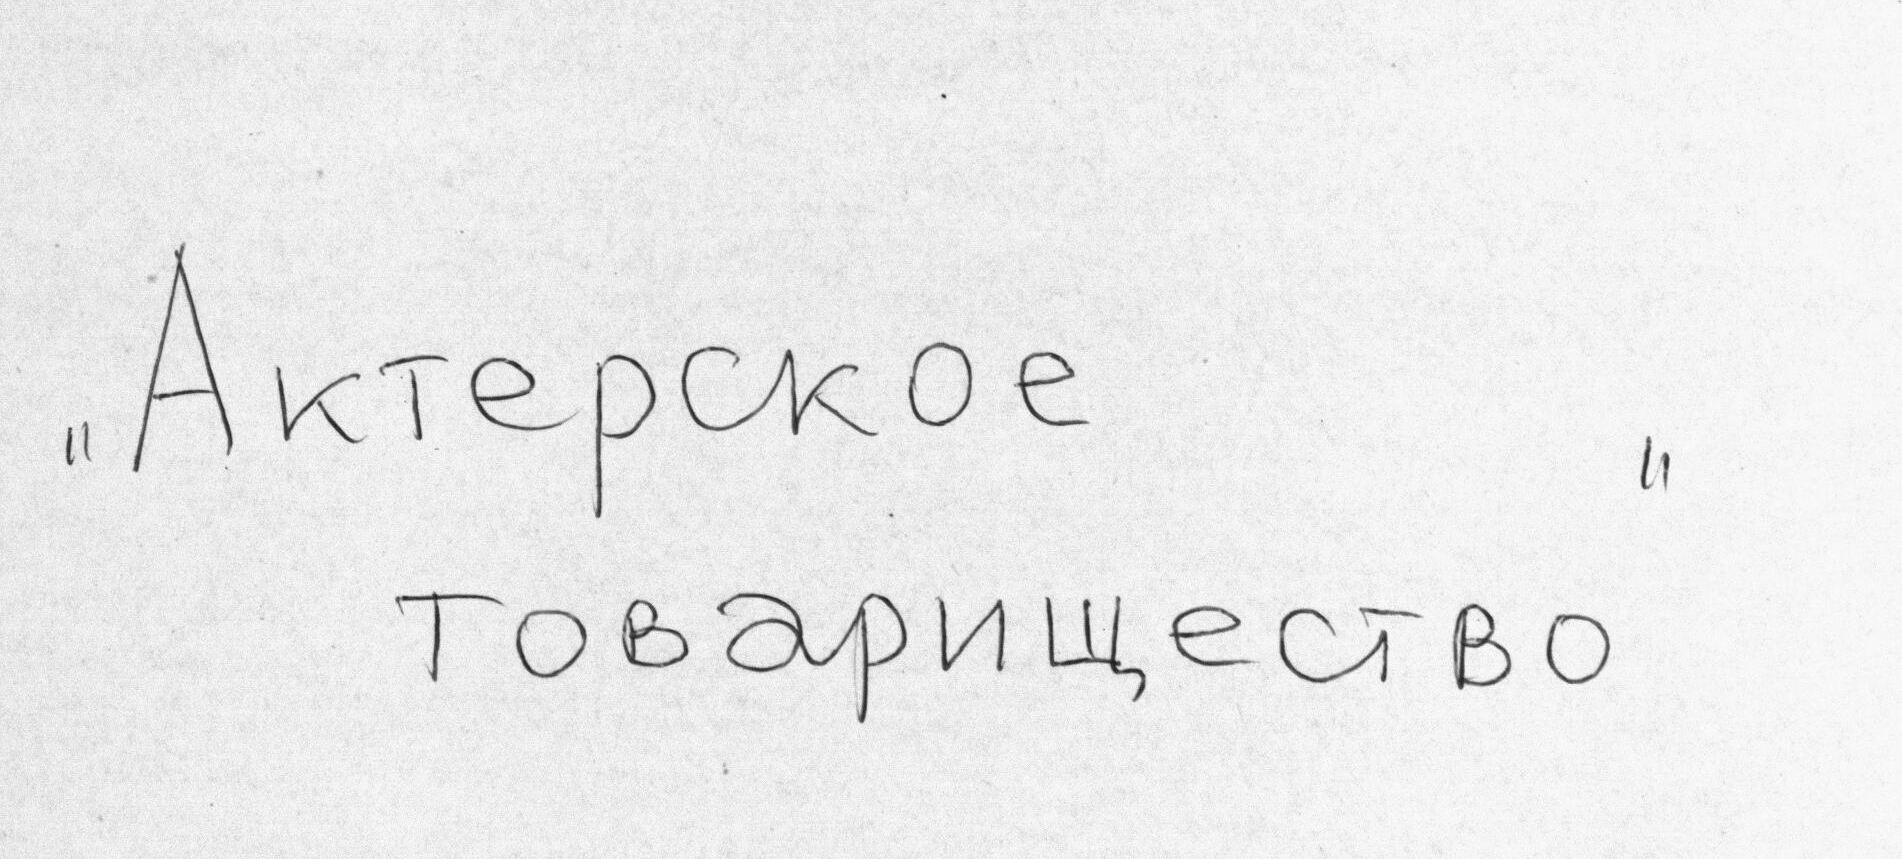 „Актерское
товарищество"